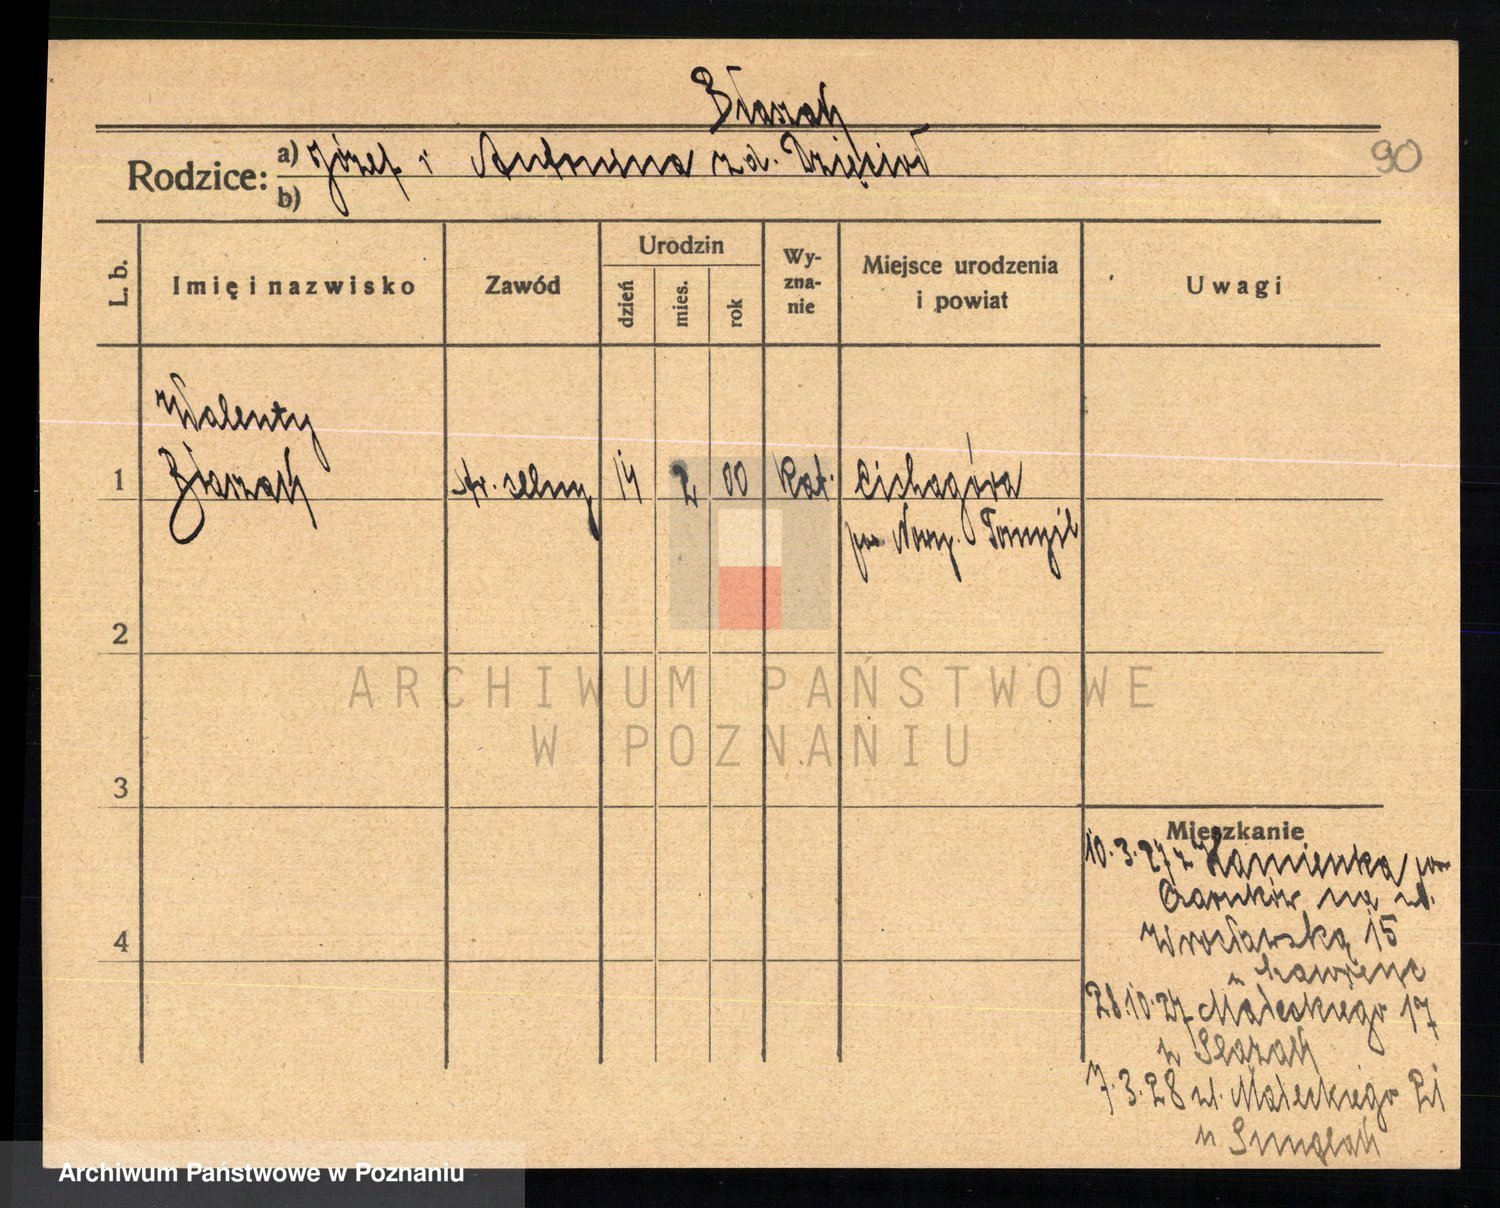 Błaszak
Rodzice: a) Józef i Antonina z d. Dzięcioł
b)
90
L. b. Imię i nazwisko Zawód Urodzin dzień mies. rok Wy-zna-nie Miejsce urodzenia i powiat Uwagi
Walenty
1 Błaszak st. celny 14 2 00 kat. Cichagóra
pow Nowy Tomyśl
2
ARCHIWUM PAŃSTWOWE
W POZNANIU
3
Mieszkanie
10.3.27 z Kamienka pow
Czarnków na ul.
Wrocławską 15
u
4
28.10.27 Małeckiego 17
u
7.3.28 ul. Małeckiego 21
u
Archiwum Państwowe w Poznaniu